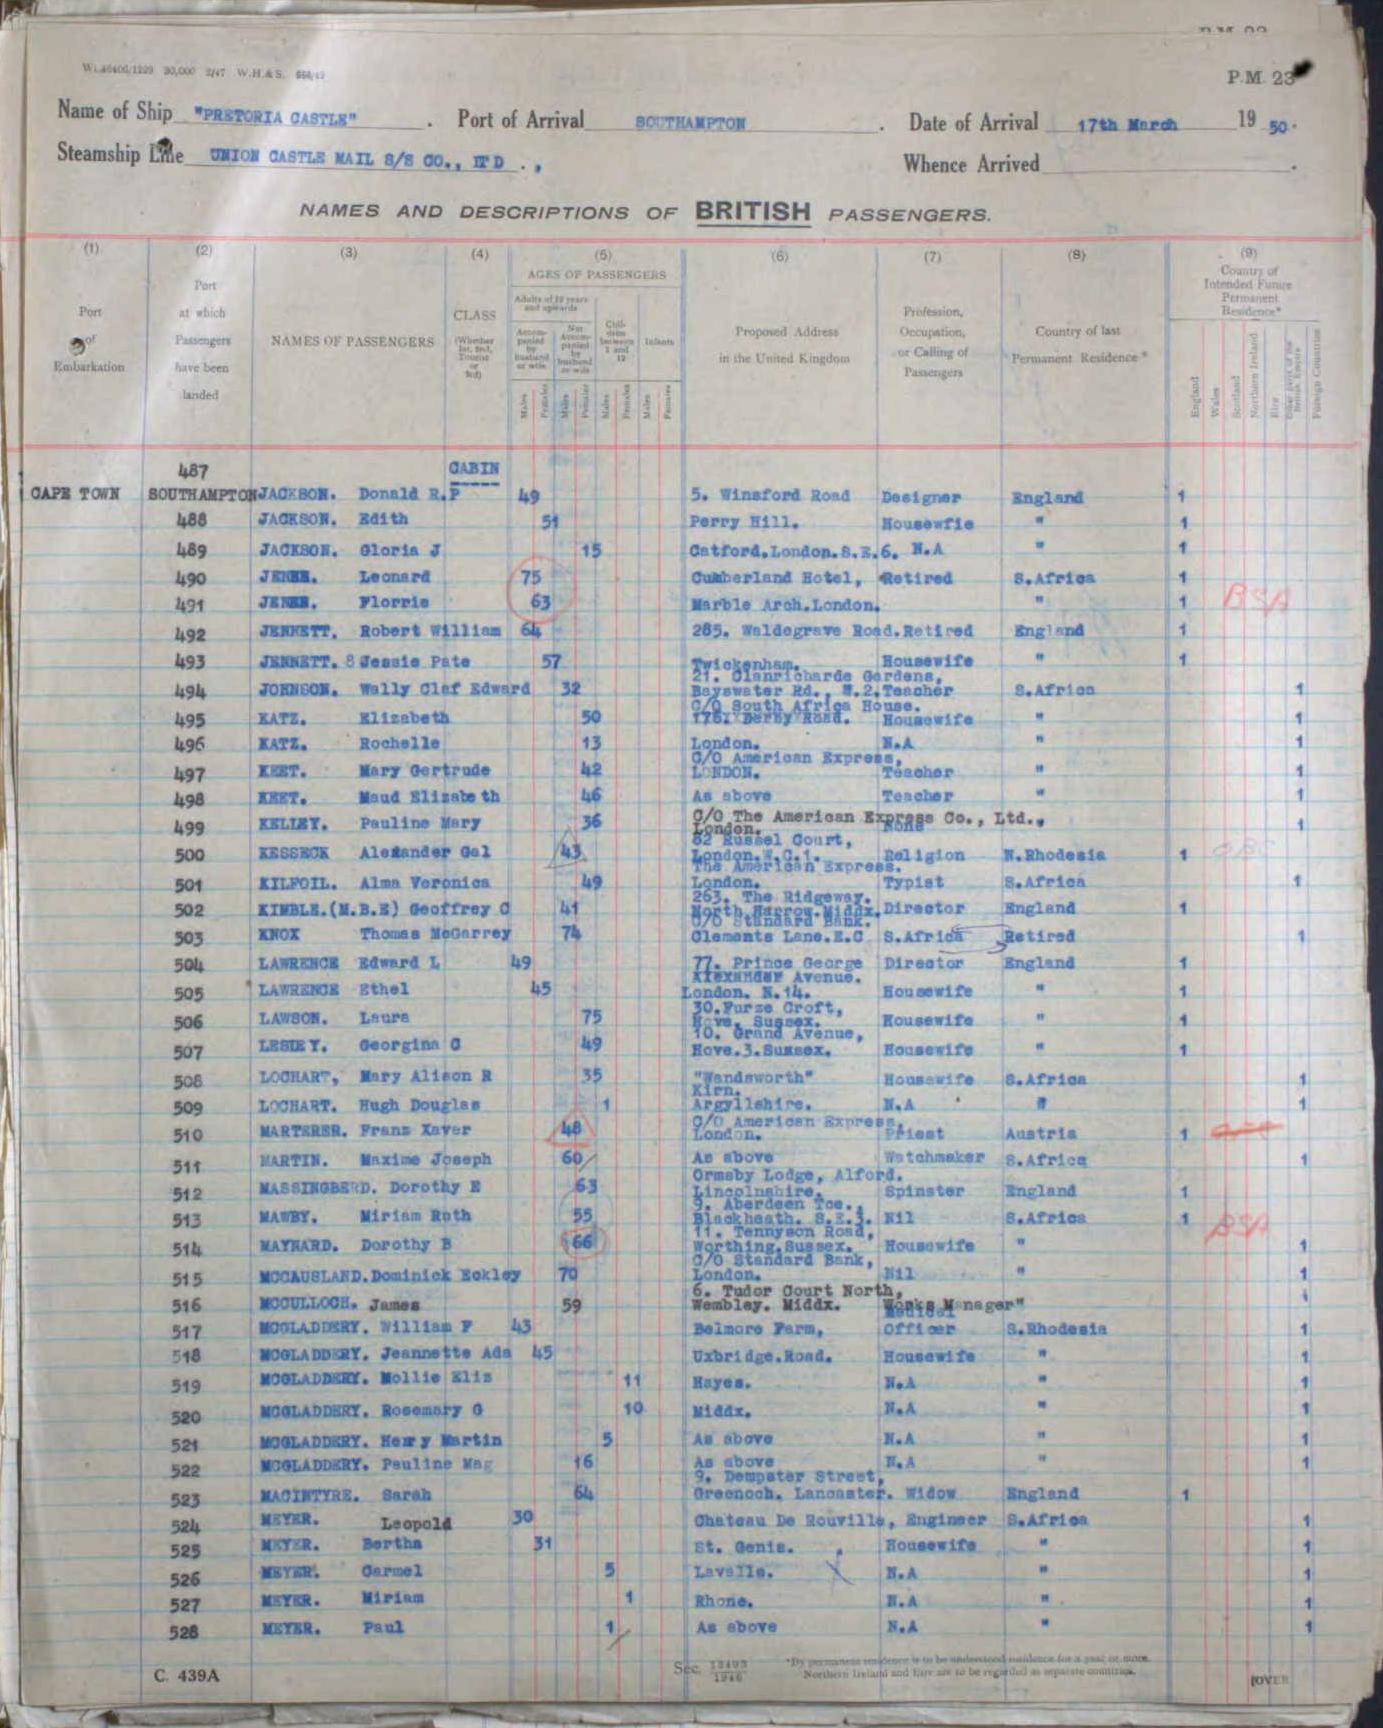 P.M. 23
Wt.46406/1229 30,000 2/47 W.H.&S. 666/49
Name of Ship "PRETORIA CASTLE" . Port of Arrival SOUTHAMPTON . Date of Arrival 17th March 19 50.
Steamship Line UNION CASTLE MAIL S/S CO., LTD . , Whence Arrived .
NAMES AND DESCRIPTIONS OF BRITISH PASSENGERS.
(1) (2) (3) (4) (5) (6) (7) (8) (9)
Port of Embarkation
Port at which Passengers have been landed
NAMES OF PASSENGERS
CLASS (Whether 1st, 2nd, Tourist or 3rd)
AGES OF PASSENGERS
Adults of 12 years and upwards
Accompanied by husband or wife
Not Accompanied by husband or wife
Children between 1 and 12
Infants
Males Females Males Females Males Females Males Females
Proposed Address in the United Kingdom
Profession, Occupation, or Calling of Passengers
Country of last Permanent Residence *
Country of Intended Future Permanent Residence*
England Wales Scotland Northern Ireland Eire Other parts of the British Empire Foreign Countries
487 CABIN
CAPE TOWN SOUTHAMPTON JACKSON. Donald R.P 49 5. Winsford Road Designer England 1
488 JACKSON. Edith 51 Perry Hill. Housewfie " 1
489 JACKSON. Gloria J 15 Catford.London.S.E.6. N.A " 1
490 Leonard 75 Cumberland Hotel, Retired S.Africa 1
491 Florrie 63 Marble Arch.London. " 1 BSA
492 JENNETT. Robert William 64 285. Waldegrave Road. Retired England 1
493 JENNETT. 8 Jessie Pate 57 Twickenham. Housewife " 1
21. Clanricharde Gardens,
494 JOHNSON. Wally Olaf Edward 32 Bayswater Rd., W.2. Teacher S.Africa 1
C/O South Africa House.
495 KATZ. Elizabeth 50 Housewife " 1
496 KATZ. Rochelle 13 London. N.A " 1
C/O American Express,
497 KEET. Mary Gertrude 42 LONDON. Teacher " 1
498 KEET. Maud Elizabeth 46 As above Teacher " 1
499 KELLEY. Pauline Mary 36 C/O The American Express Co., Ltd., 1
London. None
82 Russel Court,
500 KESSECK Alexander Gal 43 London.W.C.1. Religion N.Rhodesia 1
The American Express.
501 KILFOIL. Alma Veronica 49 London. Typist S.Africa 1
263. The Ridgeway.
502 KIMBLE.(M.B.E) Geoffrey C 41 North Harrow.Middx. Director England 1
C/O Standard Bank.
503 KNOX Thomas McGarrey 74 Clements Lane.E.C S.Africa Retired 1
504 LAWRENCE Edward L 49 77. Prince George Director England 1
Avenue.
505 LAWRENCE Ethel 45 London. N.14. Housewife " 1
30.Furze Croft,
506 LAWSON. Laura 75 Hove. Sussex. Housewife " 1
10. Grand Avenue,
507 LESLEY. Georgina C 49 Hove.3.Sussex. Housewife " 1
508 LOCHART, Mary Alison R 35 "Wandsworth" Housewife S.Africa 1
Kirn.
509 LOCHART. Hugh Douglas 1 Argyllshire. N.A " 1
C/O American Express.
510 MARTERER. Franz Xaver 48 London. Priest Austria 1
511 MARTIN. Maxime Joseph 60 As above Watchmaker S.Africa 1
Ormsby Lodge, Alford.
512 MASSINGBERD. Dorothy E 63 Lincolnshire. Spinster England 1
9. Aberdeen Tce.,
513 MAWBY. Miriam Ruth 55 Blackheath. S.E.3. Nil S.Africa 1 BSA
11. Tennyson Road,
514 MAYNARD. Dorothy B 66 Worthing.Sussex. Housewife " 1
C/O Standard Bank,
515 MCCAUSLAND. Dominick Eckley 70 London. Nil " 1
6. Tudor Court North,
516 MCCULLOCH. James 59 Wembley. Middx. Works Manager " 1
Medical
517 MCGLADDERY. William F 43 Belmore Farm, Officer S.Rhodesia 1
518 MCGLADDERY. Jeannette Ada 45 Uxbridge.Road. Housewife " 1
519 MCGLADDERY. Mollie Elis 11 Hayes. N.A " 1
520 MCGLADDERY. Rosemary G 10 Middx. N.A " 1
521 MCGLADDERY. Henry Martin 5 As above N.A " 1
522 MCGLADDERY. Pauline Mag 16 As above N.A " 1
9. Dempster Street,
523 MACINTYRE. Sarah 64 Greenoch. Lancaster. Widow England 1
524 MEYER. Leopold 30 Chateau De Rouville, Engineer S.Africa 1
525 MEYER. Bertha 31 St. Genis. Housewife " 1
526 MEYER. Carmel 5 Lavelle. N.A " 1
527 MEYER. Miriam 1 Rhone. N.A " 1
528 MEYER. Paul 1 As above N.A " 1
C. 439A
Sec. 13493/1946
*By permanent residence is to be understood residence for a year or more.
Northern Ireland and Eire are to be regarded as separate countries.
[OVER